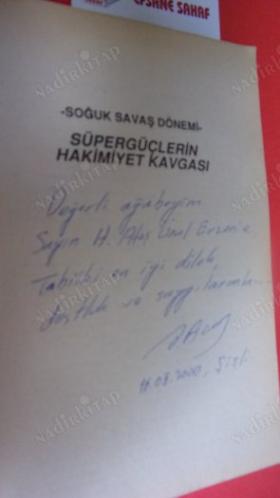 EFSANE SAHAF
-SOĞUK SAVAŞ DÖNEMİ-
SÜPERGÜÇLERİN
HAKİMİYET KAVGASI
Değerli ağabeyim
Sayın H. Ateş Ünal Erzen'e,
Tabiiki en iyi dilek
dostluk ve saygılarımla..
2000, Şişli
NADİRKİTAP